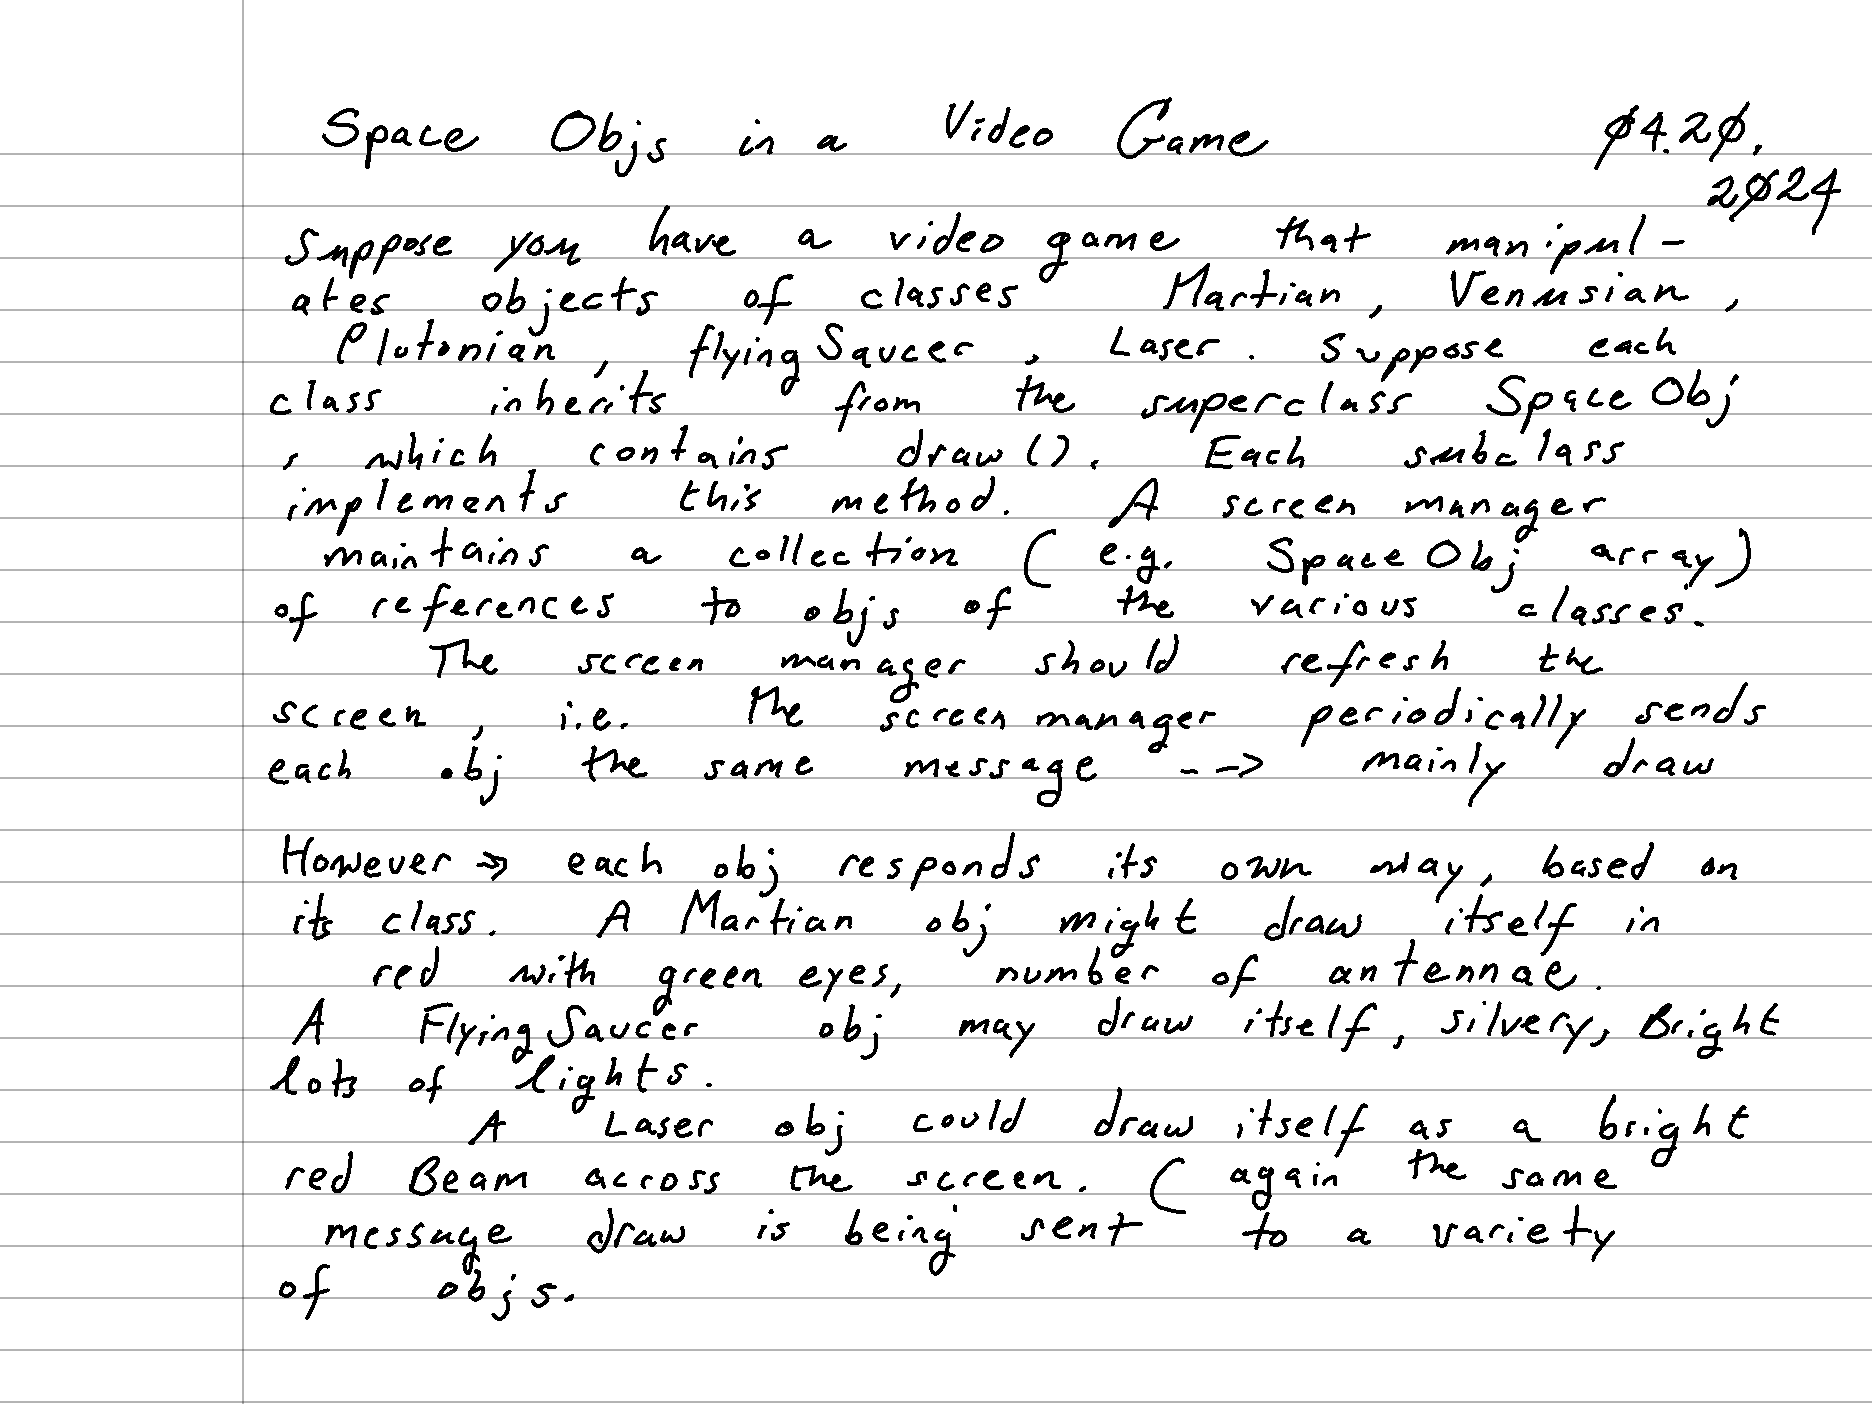 Space Objs in a Video Game
04.20.
2024
Suppose you have a video game that manipul-
ates objects of classes Martian, Venusian,
Plutonian, flyingSaucer, Laser. Suppose each
class inherits from the superclass SpaceObj
, which contains draw(). Each subclass
implements this method. A screen manager
maintains a collection (e.g. SpaceObj array)
of references to objs of the various classes.
The screen manager should refresh the
screen, i.e. the screen manager periodically sends
each obj the same message --> mainly draw
However ⇒ each obj responds its own way, based on
its class. A Martian obj might draw itself in
red with green eyes, number of antennae.
A FlyingSaucer obj may draw itself, silvery, Bright
lots of lights.
A Laser obj could draw itself as a bright
red Beam across the screen. (again the same
message draw is being sent to a variety
of objs.